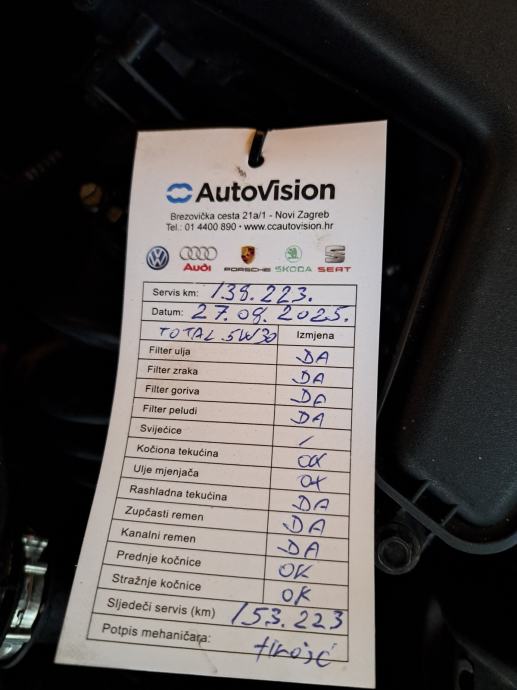 AutoVision
Brezovička cesta 21a/1 - Novi Zagreb
Tel.: 01 4400 890 • www.ccautovision.hr
Audi PORSCHE ŠKODA SEAT
Servis km: 138.223.
Datum: 27.08.2025.
TOTAL 5W30 Izmjena
Filter ulja DA
Filter zraka DA
Filter goriva DA
Filter peludi DA
Svijećice /
Kočiona tekućina OK
Ulje mjenjača OK
Rashladna tekućina DA
Zupčasti remen DA
Kanalni remen DA
Prednje kočnice OK
Stražnje kočnice OK
Sljedeči servis (km) 153.223
Potpis mehaničara: